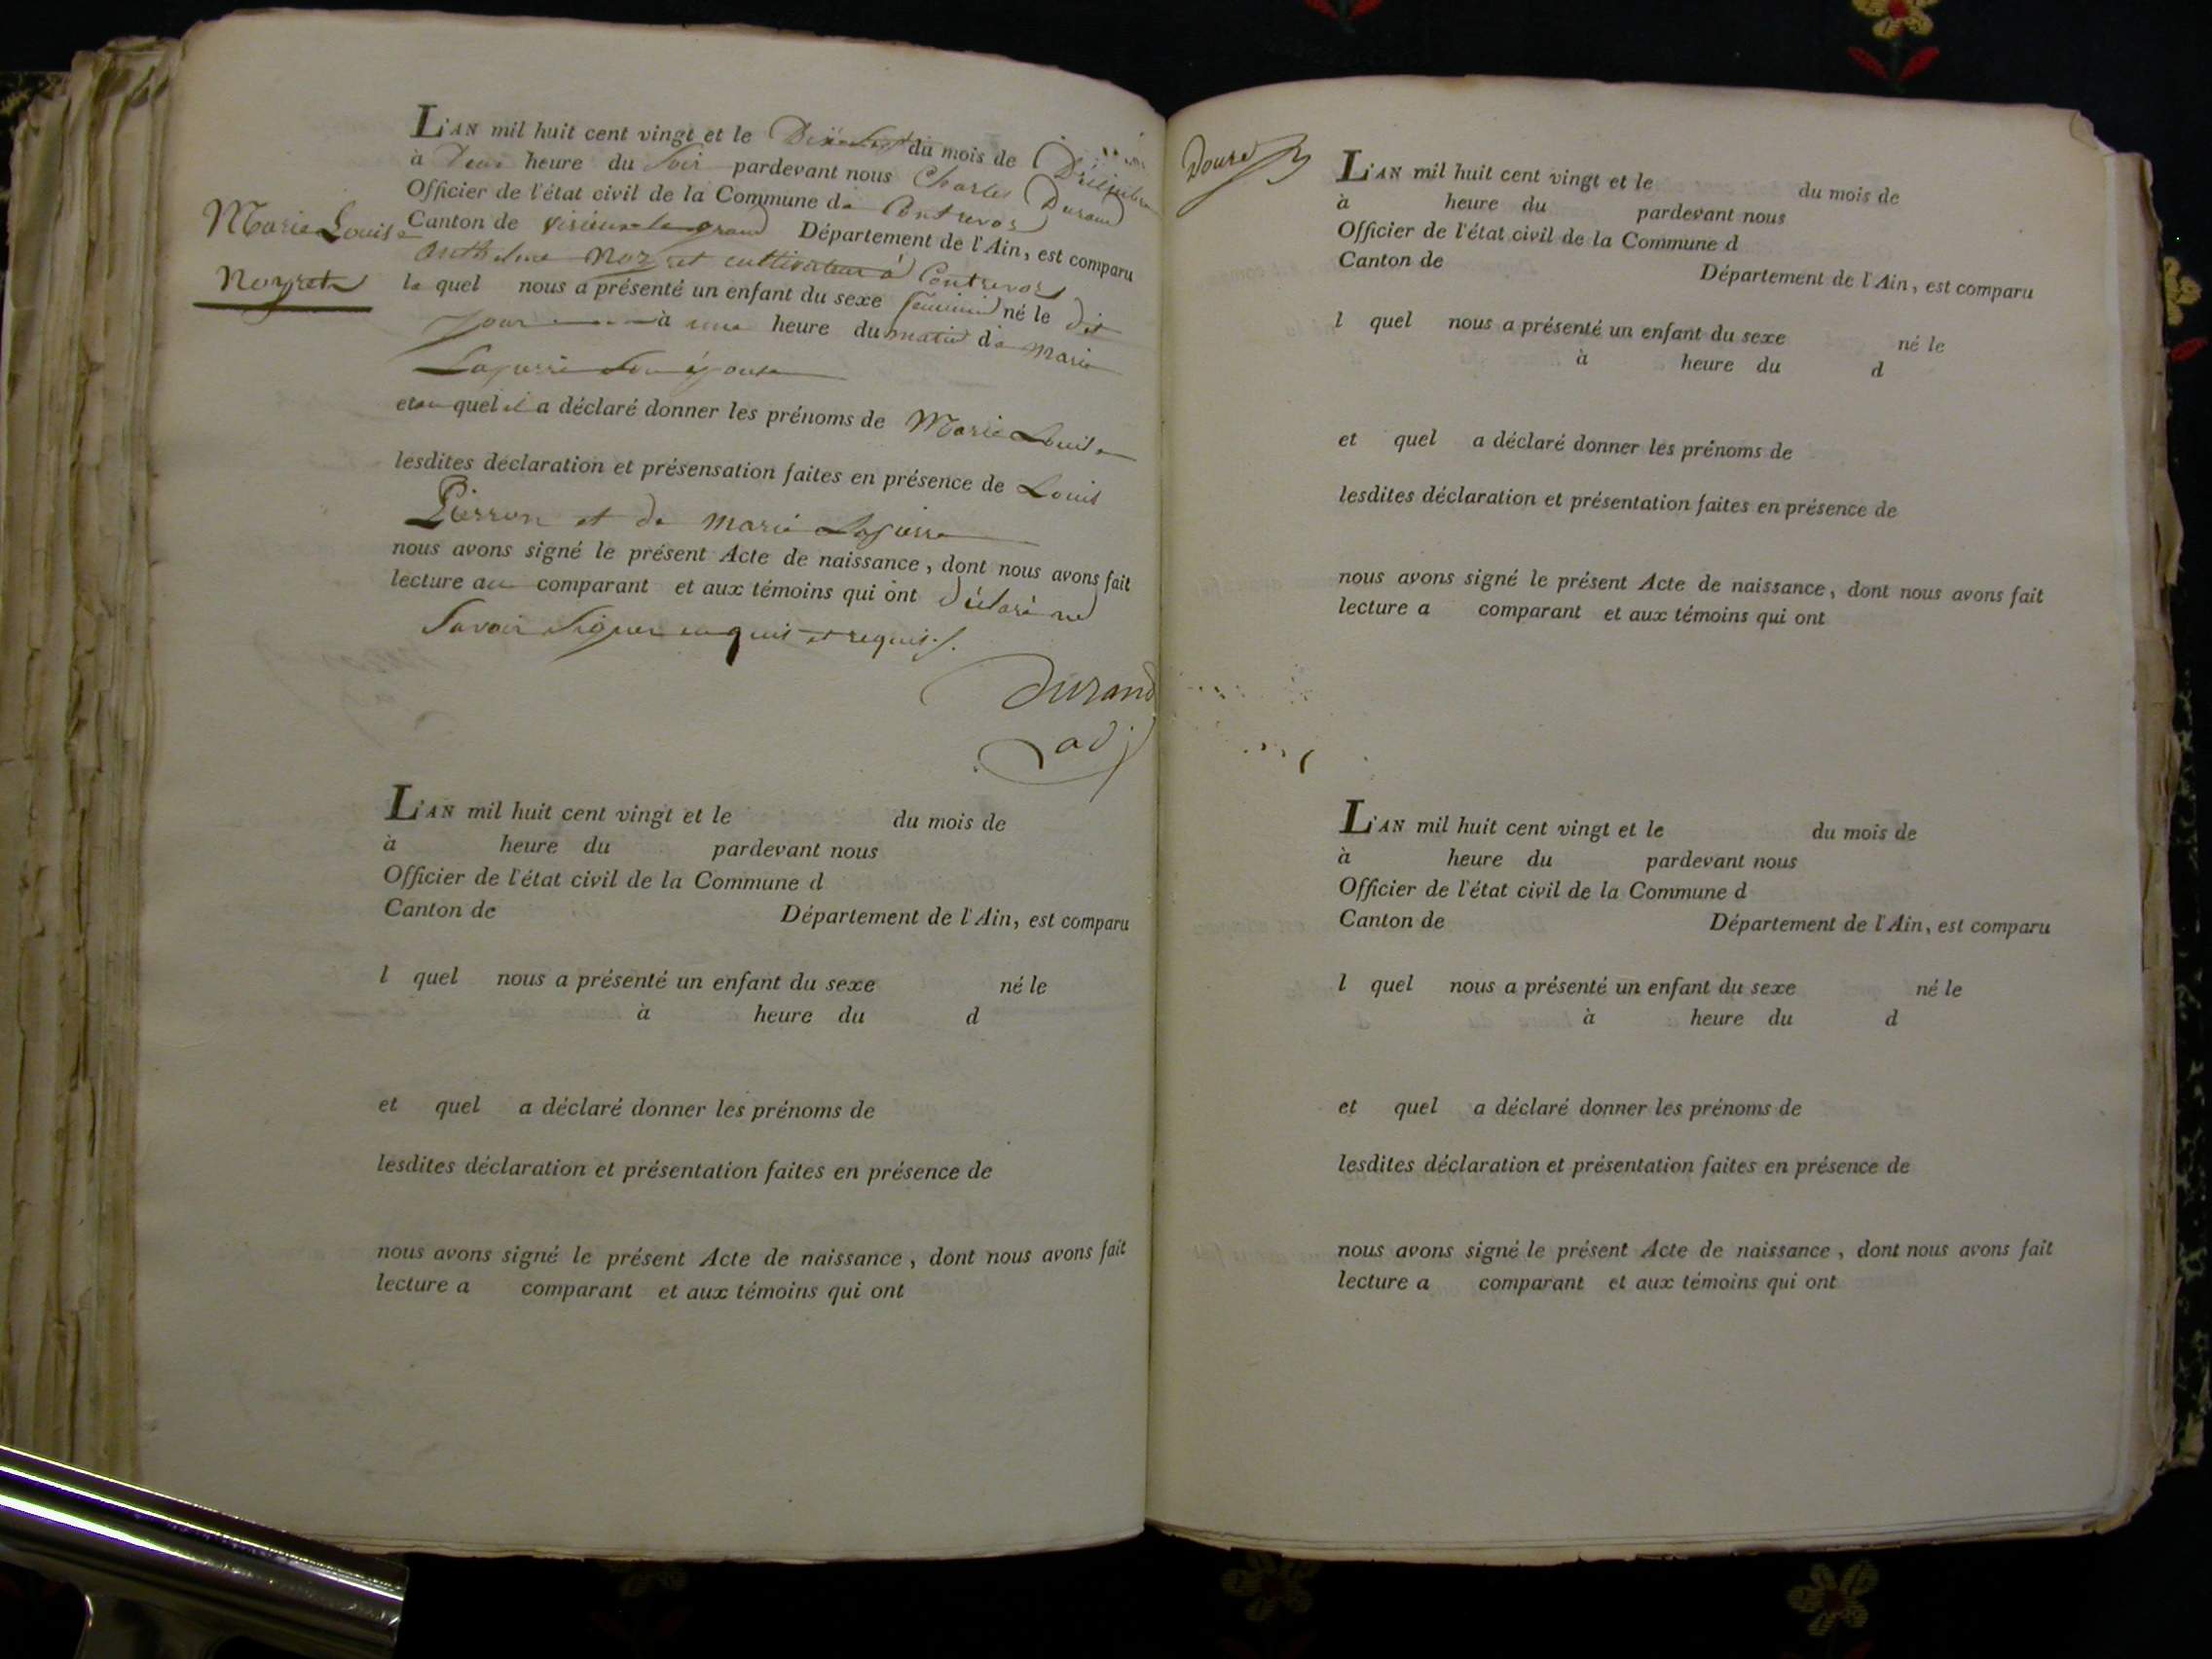 L'AN mil huit cent vingt et le Dix Sept du mois de Décembre
à Deux heure du Soir pardevant nous Charles Durand
Officier de l'état civil de la Commune de Contrevos
Canton de virieux le grand Département de l'Ain, est comparu
Anthelme Noyret cultivateur à Contrevos
le quel nous a présenté un enfant du sexe féminin né le dit
Jour à une heure du matin de Marie
Lapierre Son épouse
et au quel il a déclaré donner les prénoms de Marie Louise
lesdites déclaration et présensation faites en présence de Louis
Pierron et de Marie Lapierre
nous avons signé le présent Acte de naissance, dont nous avons fait
lecture au comparant et aux témoins qui ont déclaré ne
Savoir Signer enquis et requis.
Durand
adj
Marie Louise
Noyret
L'AN mil huit cent vingt et le du mois de
à heure du pardevant nous
Officier de l'état civil de la Commune d
Canton de Département de l'Ain, est comparu
l quel nous a présenté un enfant du sexe né le
à heure du d
et quel a déclaré donner les prénoms de
lesdites déclaration et présentation faites en présence de
nous avons signé le présent Acte de naissance, dont nous avons fait
lecture a comparant et aux témoins qui ont
L'AN mil huit cent vingt et le du mois de
à heure du pardevant nous
Officier de l'état civil de la Commune d
Canton de Département de l'Ain, est comparu
l quel nous a présenté un enfant du sexe né le
à heure du d
et quel a déclaré donner les prénoms de
lesdites déclaration et présentation faites en présence de
nous avons signé le présent Acte de naissance, dont nous avons fait
lecture a comparant et aux témoins qui ont
L'AN mil huit cent vingt et le du mois de
à heure du pardevant nous
Officier de l'état civil de la Commune d
Canton de Département de l'Ain, est comparu
l quel nous a présenté un enfant du sexe né le
à heure du d
et quel a déclaré donner les prénoms de
lesdites déclaration et présentation faites en présence de
nous avons signé le présent Acte de naissance, dont nous avons fait
lecture a comparant et aux témoins qui ont